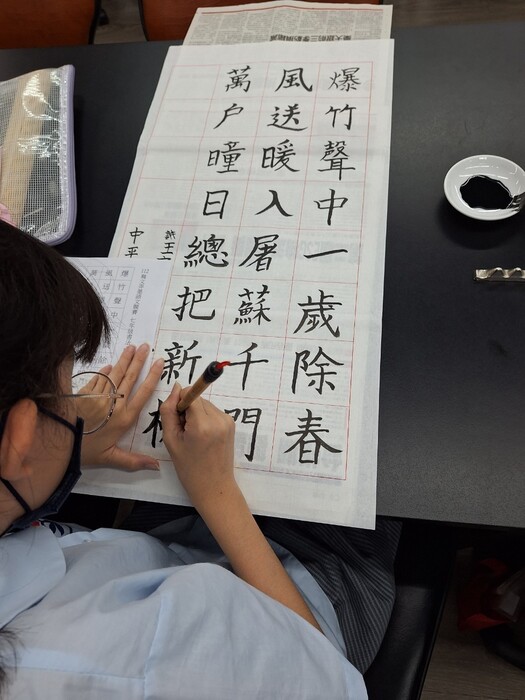 爆竹聲中一歲除春
風送暖入屠蘇千門
萬户瞳日總把新
王
中平
爆竹聲中
風送暖